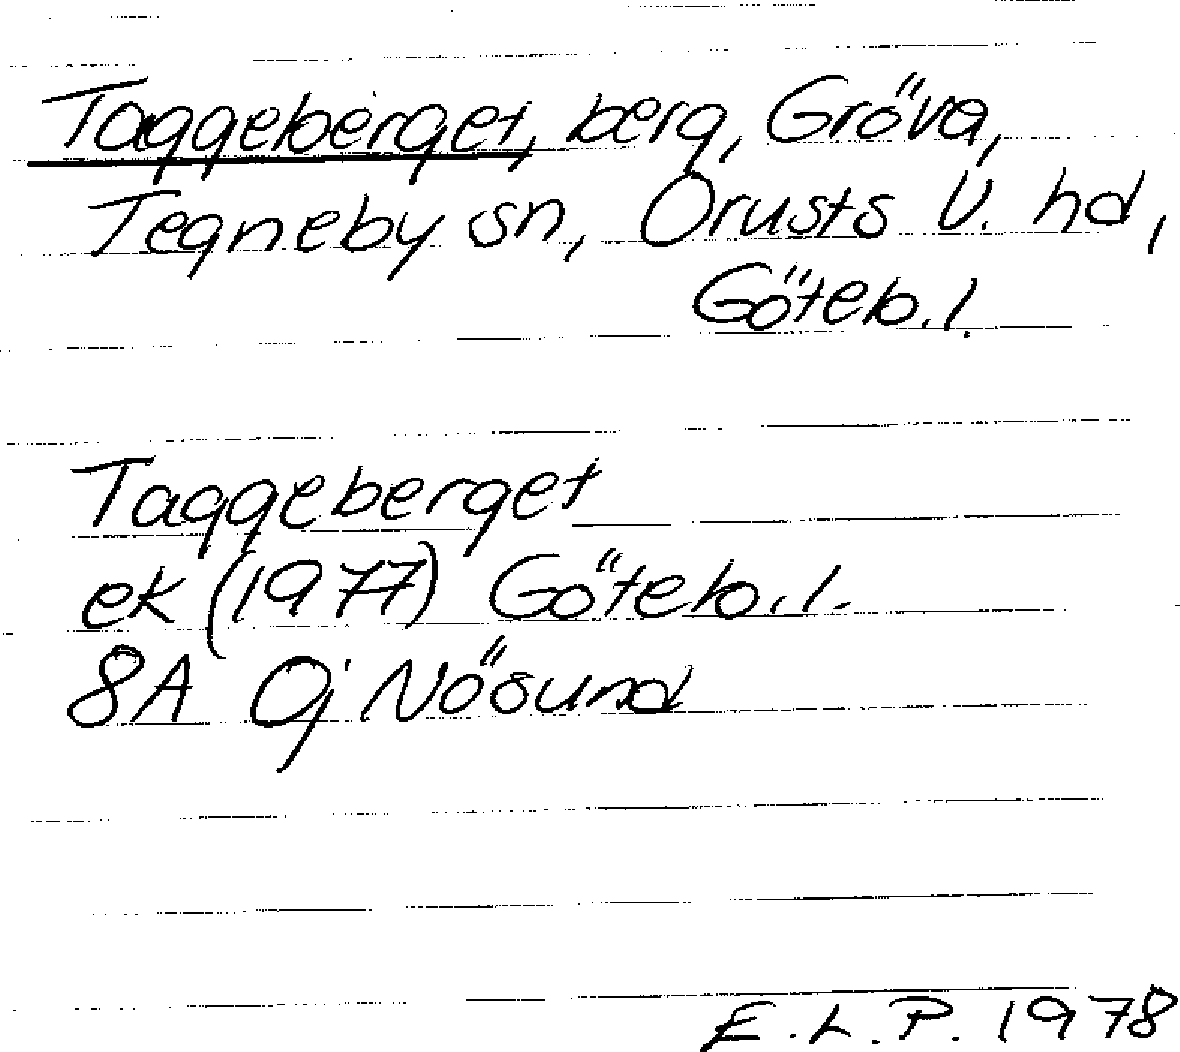 Taggeberget, berg, Gröva,
Tegneby sn, Orusts V. hd,
Göteb. l.
Taggeberget
ek (1977) Göteb. l.
8A 0j Nösund
E.L.P. 1978